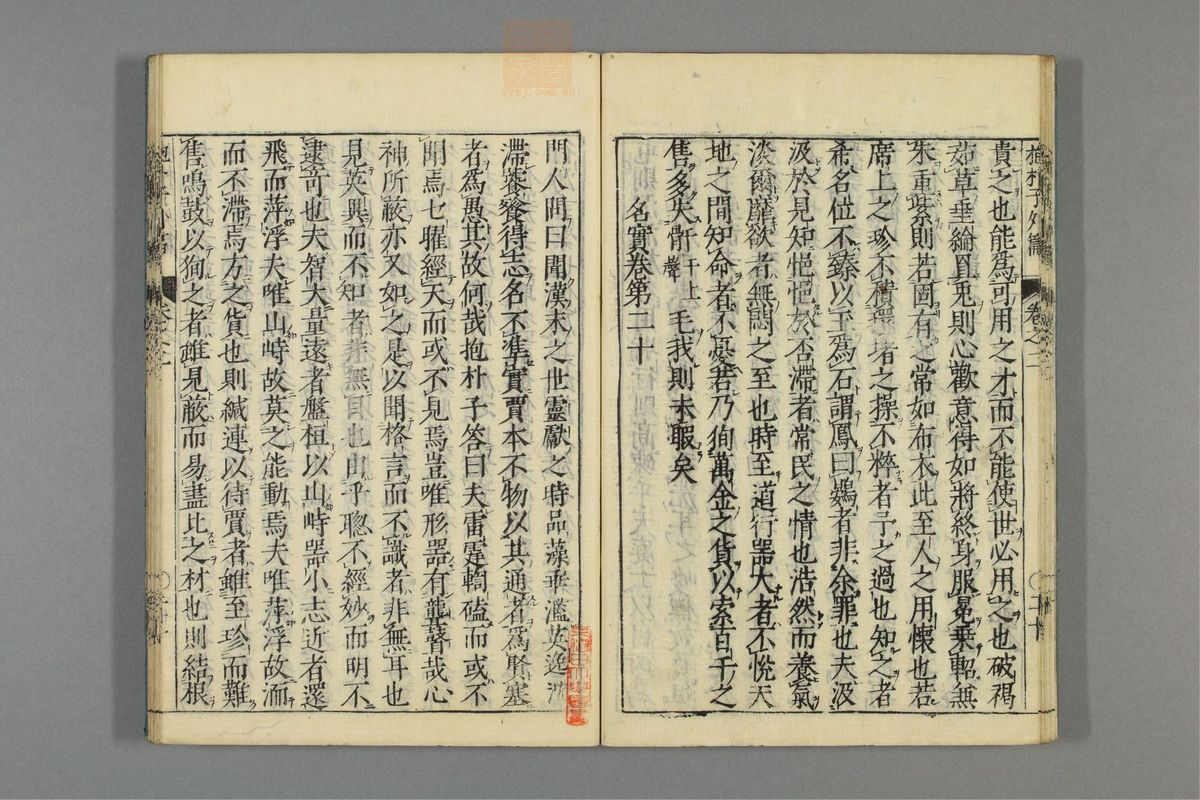 抱朴子外篇 卷之二 二十
貴之也能爲可用之才而不能使世必用之也被褐
茹草垂綸罝兎則心歡意得如將終身服冕乗軺無
朱重紫則若固有之常如布衣此至人之用懷也若
席上之珍不積環堵之操不粹者予之過也知之者
希名位不臻以至爲石謂鳳曰鷃者非余罪也夫汲
汲於見知悒悒於否滯者常民之情也浩然而養氣
淡爾靡欲者無悶之至也時至道行器大者不恱天
地之間知命者不憂若乃徇萬金之貨以索百千之
售多失骭干上聲毛我則未暇矣
名實卷第二十
門人問曰聞漢末之世靈獻之時品藻乖濫英逸
滯饕餮得志名不準實賈本不物以其通者爲賢塞
者爲愚其故何哉抱朴子答曰夫雷霆輷磕而或不
聞焉七曜經天而或不見焉豈唯形器有聾瞽哉心
神所蔽亦又如之是以聞格言而不識者非無耳也
見英異而不知者非無目也由乎聦不經妙而明不
逮奇也夫智大量遠者盤桓以山峙器小志近者還
飛而萍浮夫唯山峙故莫之能動焉夫唯萍浮故洏
而不滯焉方之貨也則緘連以待賈者雖至珍而難
售鳴鼓以狥之者雖見蔽而易盡比之材也則結根